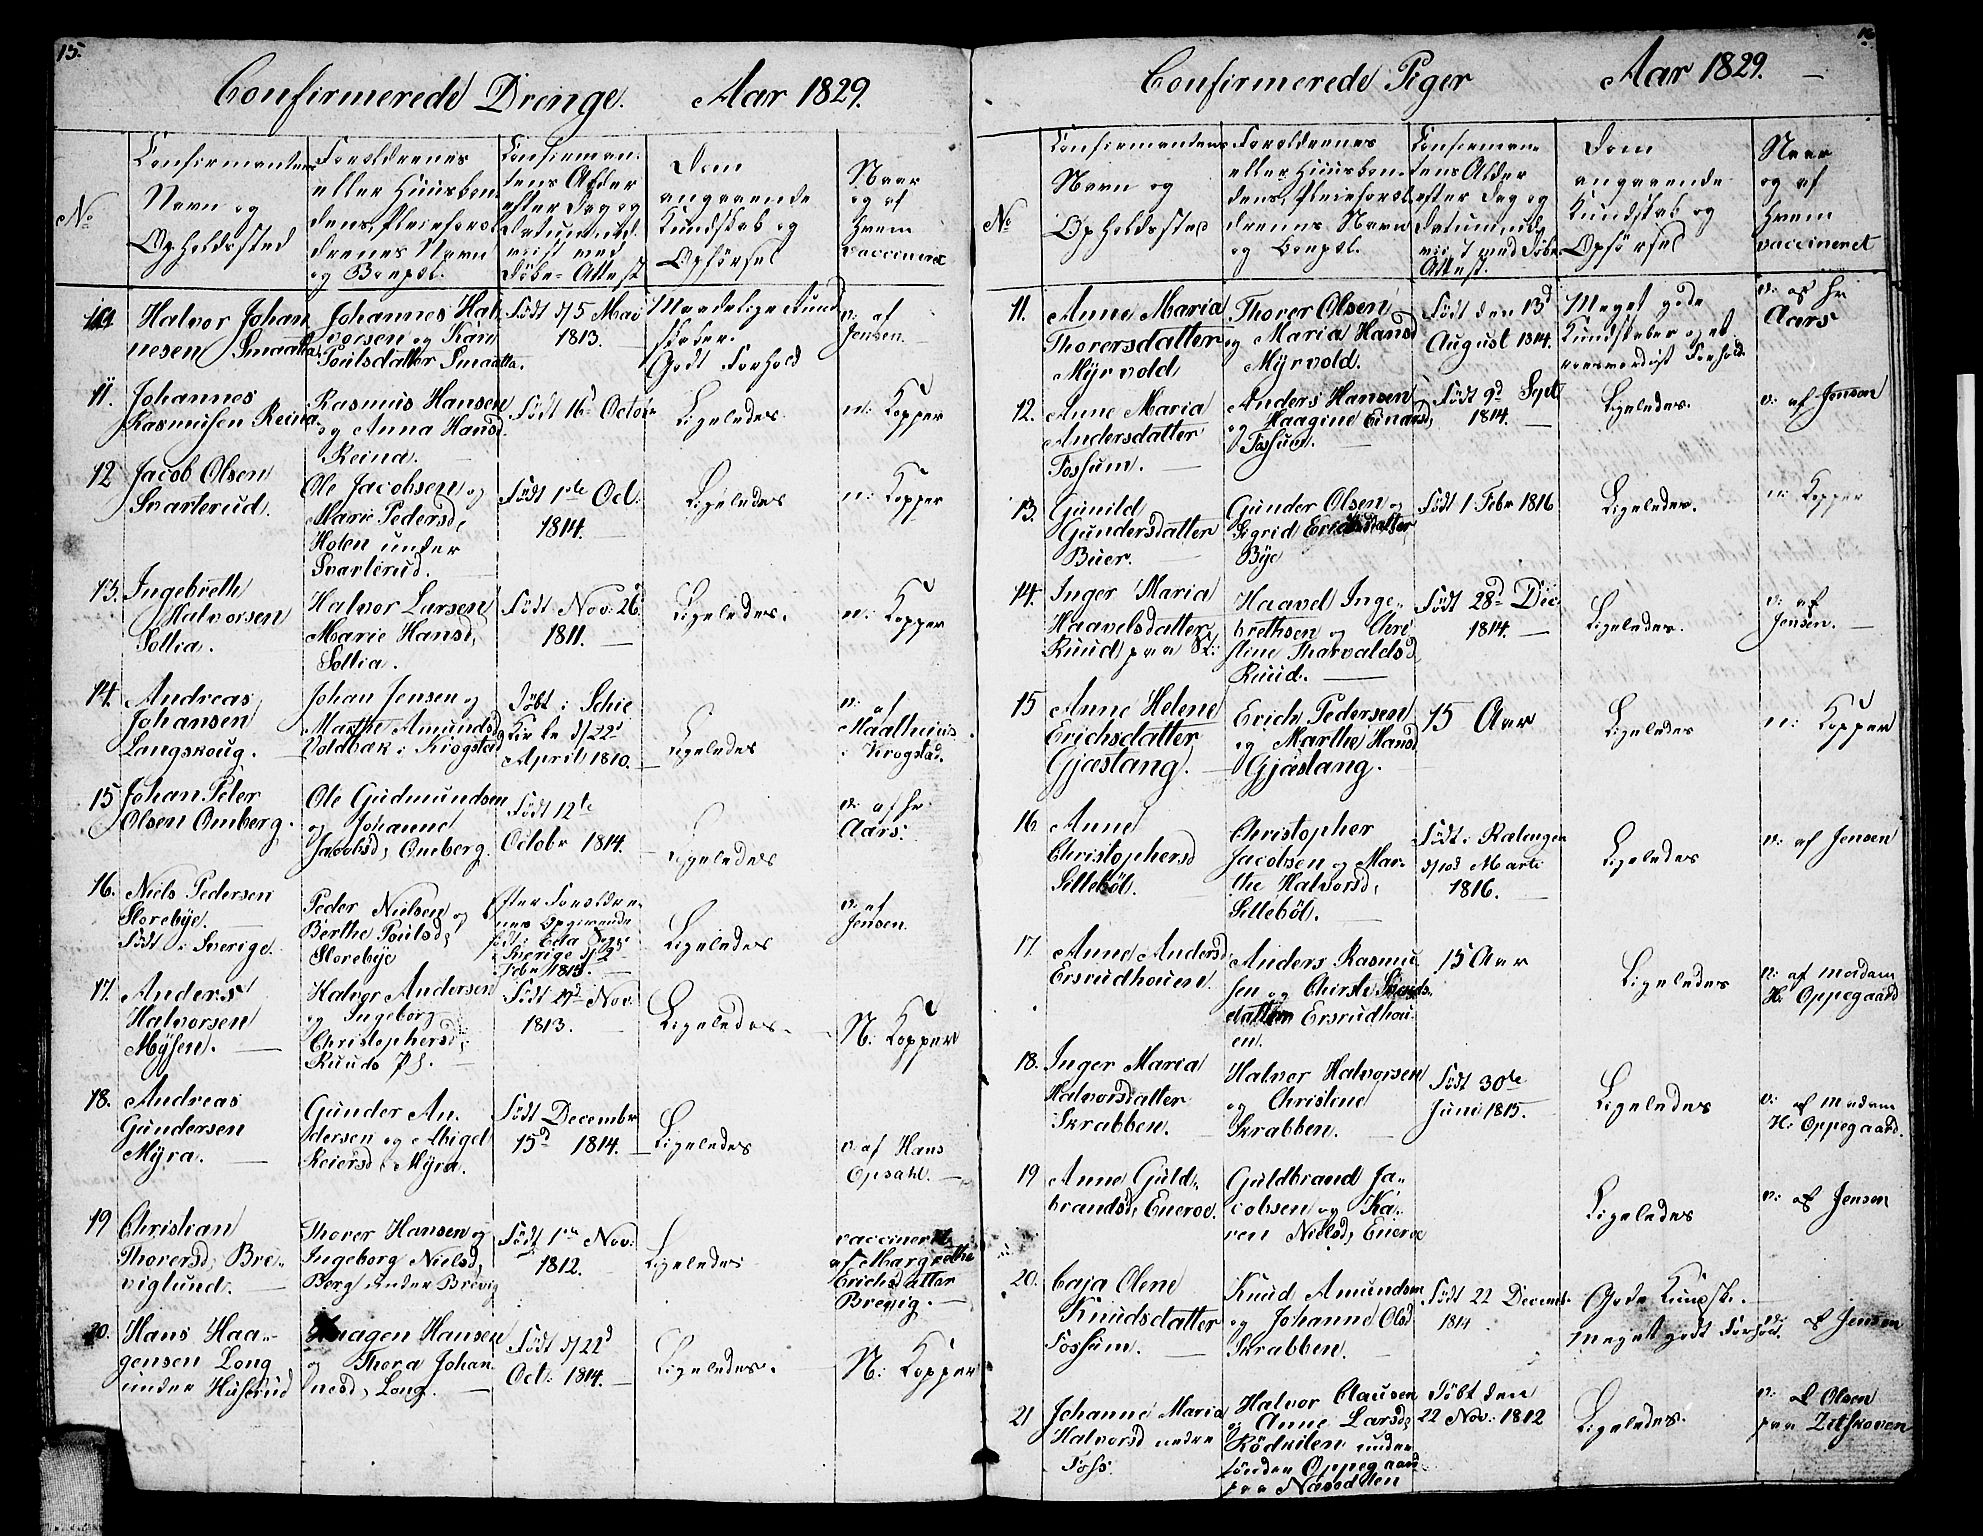 15.
Confirmerede Drenge. Aar 1829.
No
Confirmantens
Navn og
Opholdssted
Foreldrenes
eller Huusbon-
dens, Pleieforel-
drenes Navn
og Boepæl.
Confirman-
tens Alder
efter Dag og
Datum, ud-
viist ved
Döbe-Attest
Dom
angaaende
Kundskab og
Opförsel
Naar
og af
hvem
vaccineret
Halvor Johan
nesen Smaatta
Johannes Hal-
vorsen og Kari
Poulsdatter Smaatta.
Födt d/5 Mai
1813.
Maadelige Kund
skaber.
Godt Forhold
v: af
Jensen.
11.
Johannes
Rasmusen Reina
Rasmus Hansen
og Anna Hansd.
Reina.
Födt 16d Octobr
Ligeledes
n: Kopper
12
Jacob Olsen
Svarterud.
Ole Jacobsen og
Marie Pedersd,
Holen under
Svarterud.
Födt 1ste Oct.
1814.
Ligeledes
n: Kopper
13.
Ingebreth
Halvorsen
Sollia.
Halvor Larsen
Marie Hansd,
Sollia.
Födt Nov. 26d
1811.
Ligeledes.
n: Kopper
14.
Andreas
Johansen
Langskoug.
Johan Jensen og
Marthe Amundsd,
Voldbæk i Krogstad
Döbt i Schie
Kirke d/22d
April 1810.
Ligeledes
v: af
Maalheiius
i Krogstad.
15
Johan Peter
Olsen Omberg.
Ole Gudmundsen
og Johanne
Jacobsd, Omberg.
Födt 12te
Octobr 1814.
Ligeledes
v: af hr.
Aars.
16.
Niels Pedersen
Storebÿe.
Födt i Sverige.
Peder Nielsen og
Berthe Poulsd,
Storebÿe
Efter Foreldre-
nes Opgivende
födt i Eda
Sverige d/2d
Febr 1815.
Ligeledes
v: af
Jensen.
17.
Anders
Halvorsen
Mÿsen.
Halvor Andersen
og Ingeborg
Christophersd,
Ruuds Pl.
Födt 29d Nov.
1813.
Ligeledes.
N: Kopper
18.
Andreas
Gundersen
Mÿra.
Gunder An-
dersen og Abigel
Reiersd, Mÿra.
Födt Decembr
15d 1814.
Ligeledes
v: af Hans
Opsahl.
19
Christian
Thorersd, Bre-
viglund.
Thorer Hansen og
Ingeborg Nielsd,
Berg under Brevig
Födt 1ste Nov.
1812.
Ligeledes
vaccineret
af Margrethe
Erichsdatter
Brevig.
20.
Hans Haa-
gensen Long
under Huserud
Haagen Hansen
og Thora Johan-
nesd, Long.
Födt d/22d
Oct. 1814.
Ligeledes.
N: Kopper
16
Confirmerede Piger Aar 1829.
No
Confirmantens
Navn og
Opholdssted
Foreldrenes
eller Huusbon-
dens, Pleieforel-
drenes Navn
og Boepæl.
Confirman-
tens Alder
efter Dag og
Datum, ud-
viist ved Döbe-
Attest.
Dom
angaaende
Kundskab og
Opförsel
Naar
og af
hvem
vaccineret
11.
Anne Maria
Thorersdatter
Mÿrvold
Thorer Olsen
og Maria Hansd
Mÿrvold.
Födt den 13d
August 1814.
Meget gode
Kundskaber og et
roesværdigt Forhold.
v: af hr
Aars
12.
Anne Maria
Andersdatter
Fossum.
Anders Hansen
og Haagine Einarsd,
Fossum.
Födt 9d Sept
1814.
Ligeledes.
v: af Jensen
13.
Gunild
Gundersdatter
Buer.
Gunder Olsen og
Sigrid Erichsdatter
Bÿe
Födt 1 Febr 1816
Ligeledes.
n: Kopper
14.
Inger Maria
Haavelsdatter
Ruud paa Ski
Haavel Inge-
brethsen og Chri
stine Thorvaldsd,
Ruud.
Födt 28d Dec.
1814.
Ligeledes.
v: af
Jensen.
15
Anne Helene
Erichsdatter
Gjæstang.
Erich Pedersen
og Marthe Hansd
Gjæstang.
15 Aar
Ligeledes
n: Kopper
16.
Anne
Christophersd
Silleböl.
Christopher
Jacobsen og Mar-
the Halvorsd,
Silleböl.
Födt i Ralingen
Marti
1816.
Ligeledes
v: af Jensen
17.
Anne Andersd
Ersrudhouen.
Anders Rasmu
sen og Chirste Sivers
datter Ersrudhou
en.
15 Aar
Ligeledes
v: af Madam
H: Oppegaard
18.
Inger Maria
Halvorsdatter
Skrabben.
Halvor Halvorsen
og Christine
Skrabben.
Födt 30te
Juni 1815.
Ligeledes
v: af Madam
H: Oppegaard.
19
Anne Guld-
brandsd, Eneroe.
Guldbrand Ja-
cobsen og Ka-
ren Nielsd, Eneroe
Ligeledes
v: af Jensen
20.
Caja Olene
Knudsdatter
Fossum.
Knud Amundsen
og Johanne Olsd
Skrabben.
Födt 22 Decemb.
1814
Gode Kundsk.
meget godt Forhold.
v: af Jensen
21
Johanne Maria
Halvorsd nedre
Foss.
Halvor Clausen
og Anne Larsd,
Rödkilen under
söndre Oppegaard
paa Næsodden
Döbt den
22 Nov. 1812
Ligeledes.
v: af Olsen
paa Zitskoven